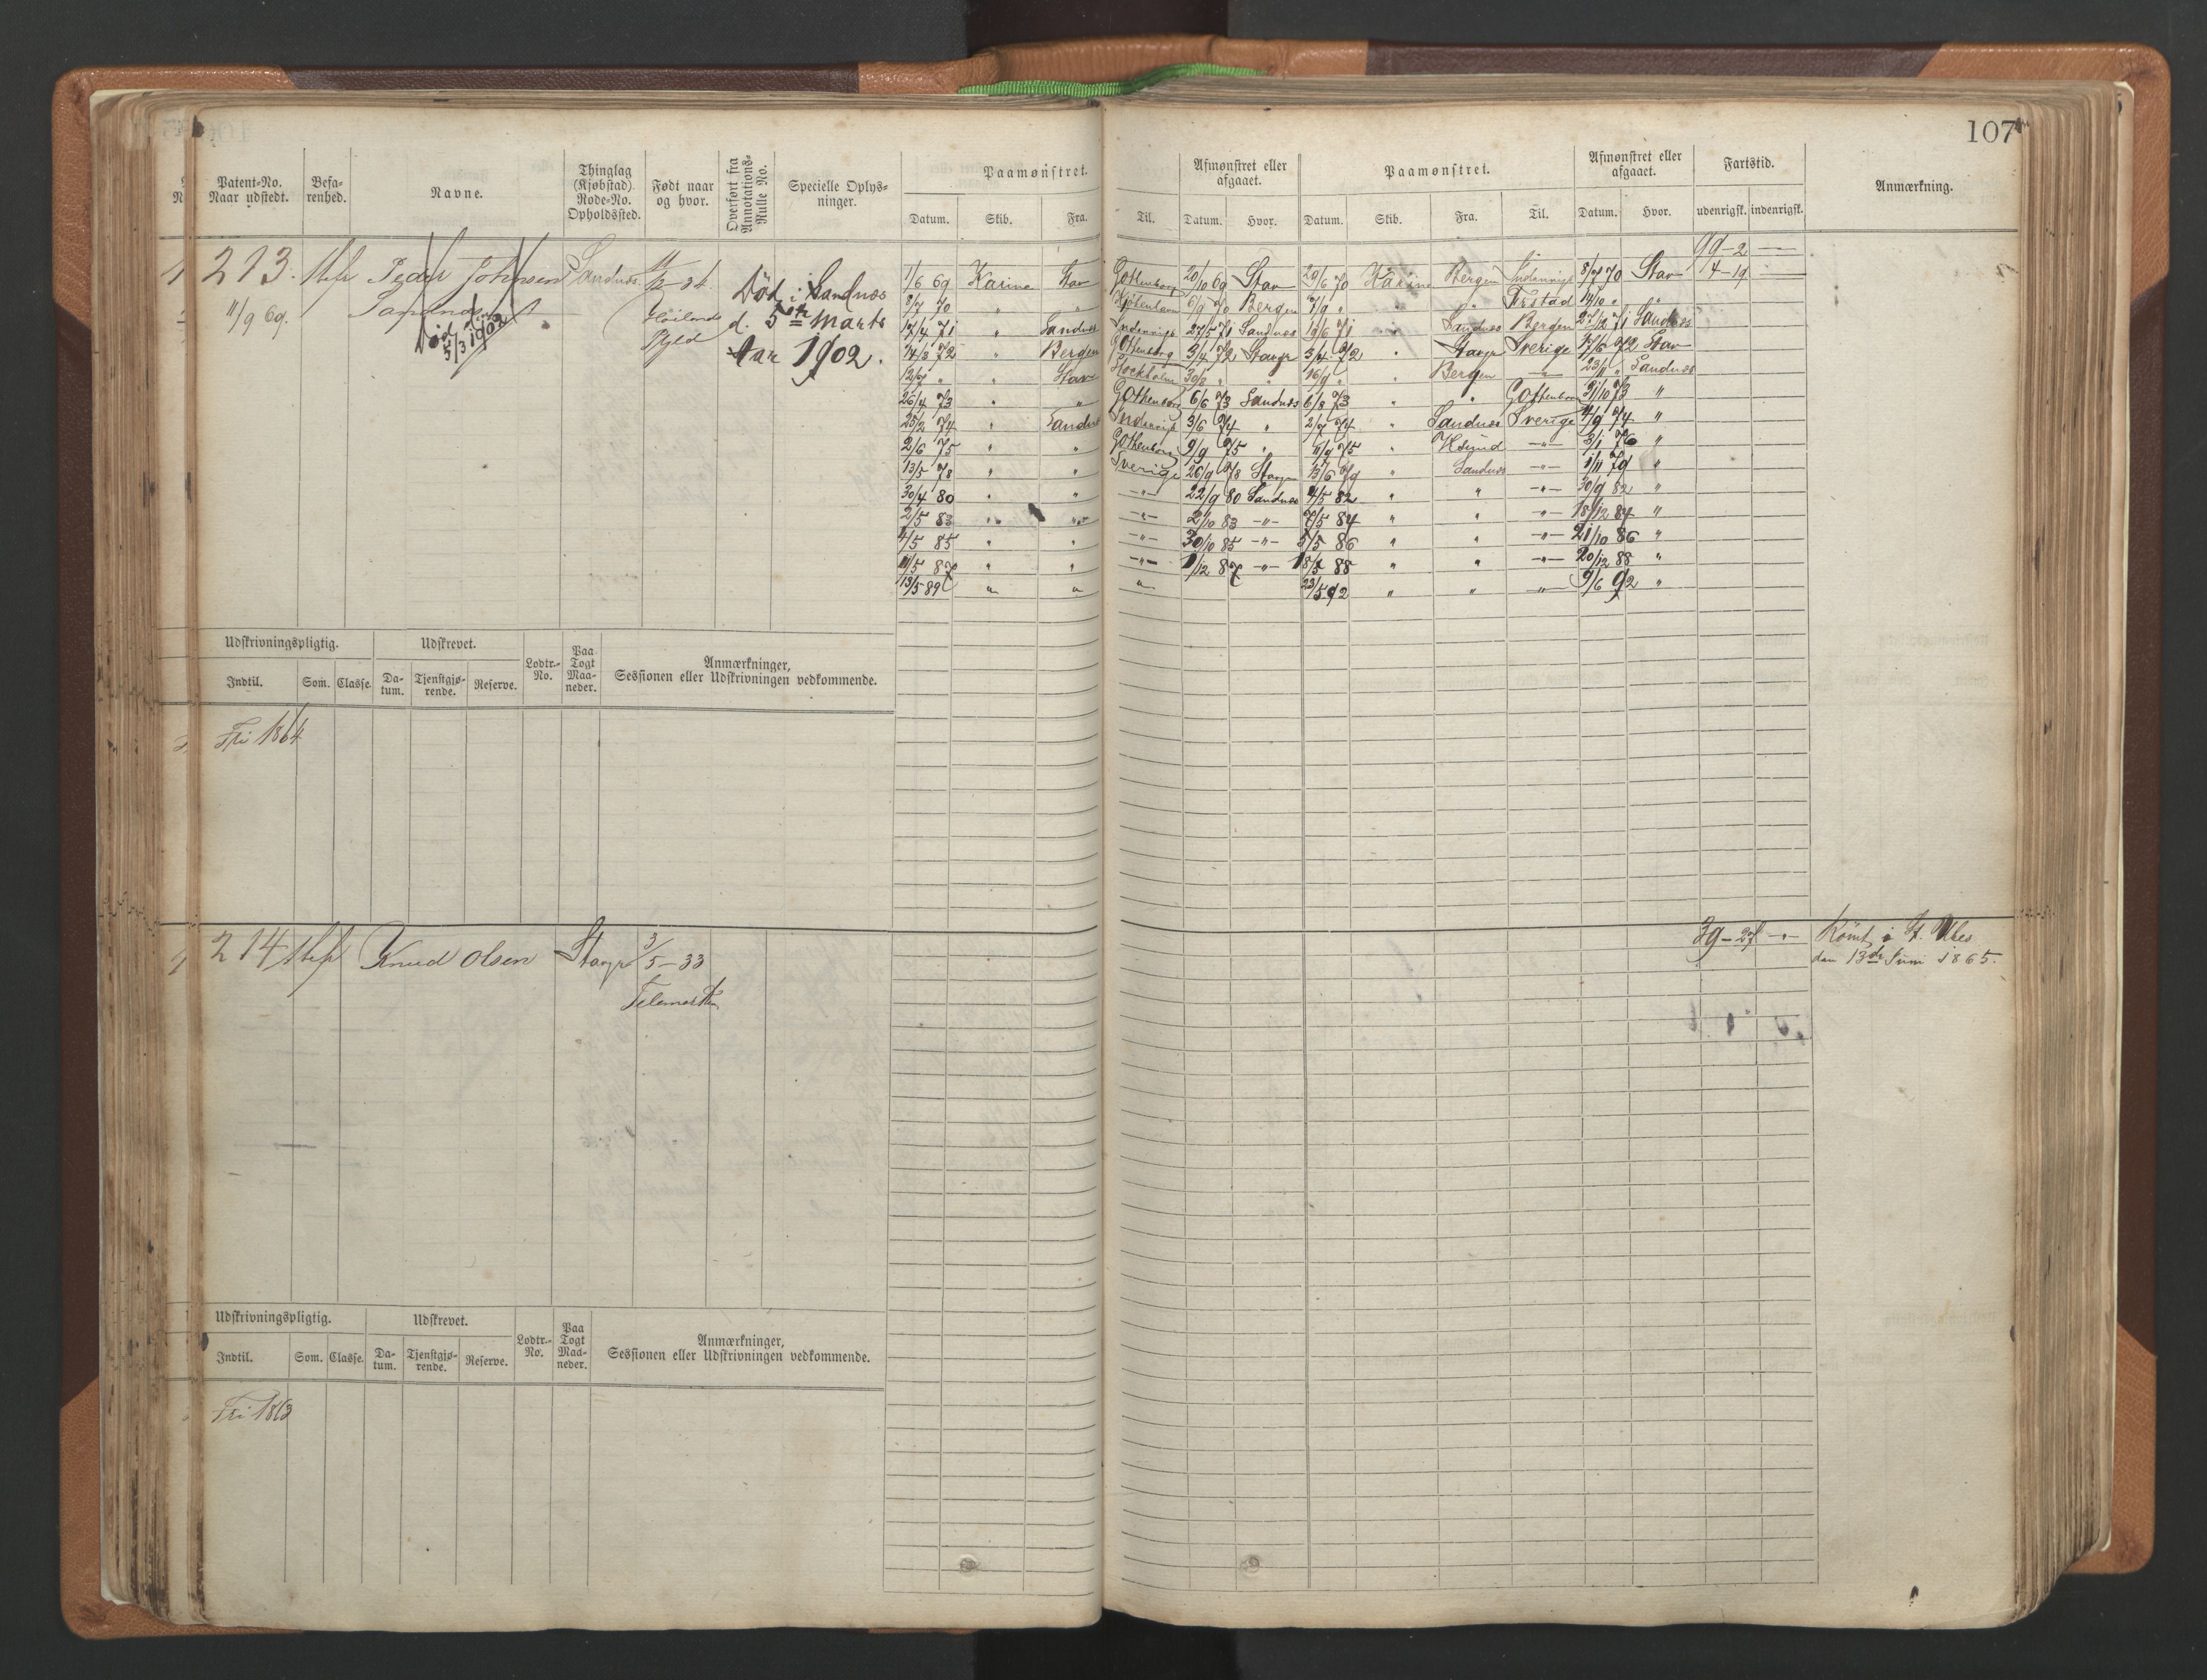 107
Patent-No. Naar udstedt.
Befa-renhed.
Navne.
Thinglag (Kjøbstad) Rode-No. Opholdssted.
Født naar og hvor.
Overført fra Annotations-Rulle No.
Specielle Oplys-ninger.
Paamønstret.
Datum. Skib. Fra. Til.
Afmønstret eller afgaaet.
Datum. Hvor.
Paamønstret.
Datum. Skib. Fra. Til.
Afmønstret eller afgaaet.
Datum. Hvor.
Fartstid.
udenrigsk. indenrigsk.
Anmærkning.
213.
11/9 69.
Peder Johnsen
Død 5/3 1902
Sandnæs
Død i Sandnæs
d. 5te Marts
1902.
99-2
4-19
1/6 69 Karine Stav Gottenborg 20/10 69 Stav 29/6 70 Karine Bergen Indenrigs 8/7 70 Stav
8/7 70 " " Kjøbenhavn 6/9 70 Bergen 7/9 " " " 14/10 " "
17/4 71 " Sandnæs Indenrigs 27/5 71 Sandnæs 19/6 71 " Sandnæs Bergen 27/12 71 Sandnæs
14/3 72 " Bergen Gottenborg 3/4 72 Stavgr 3/4 72 " Stavgr Sverige 17/6 72 Stav
12/7 " " Stav Stockholm 30/8 " " 16/9 " " Bergen -"- 23/11 " Sandnæs
26/4 73 " " Gottenborg 6/6 73 Sandnæs 6/8 73 " " Gottenborg 31/10 73 "
25/2 74 " Sandnæs Indenrigs 3/6 74 " 2/7 74 " Sandnæs Sverige 4/9 74 "
2/6 75 " " Gottenborg 9/9 75 " 11/9 75 " -"- 3/1 76 "
13/5 78 " " Sverige 26/9 78 Stavgr 13/6 79 " Sandnæs -"- 1/11 79 "
30/4 80 " " -"- 22/9 80 Sandnæs 4/5 82 " " -"- 30/9 82 "
2/5 83 " " -"- 2/10 83 -"- 7/5 84 " " -"- 18/12 84 "
4/5 85 " " -"- 30/10 85 -"- 5/5 86 " " -"- 21/10 86 "
11/5 87 " " -"- 1/12 87 -"- 18/5 88 " " -"- 20/12 88 "
13/5 89 " " " 23/5 92 " " " 9/6 92 "
Udskrivningspligtig. Udskrevet.
Lodtr.-No.
Paa Togt Maa-neder.
Anmærkninger,
Sessionen eller Udskrivningen vedkommende.
Indtil. Som. Classe. Da-tum. Tjenstgjø-rende. Reserve.
Fri 1864
214 Knud Olsen Stavgr 3/5-33
Telemarken
39-27 -"-
Rømt i St. Ubes
den 13de Juni 1865.
Udskrivningspligtig. Udskrevet.
Lodtr.-No.
Paa Togt Maa-neder.
Anmærkninger,
Sessionen eller Udskrivningen vedkommende.
Indtil. Som. Classe. Da-tum. Tjenstgjø-rende. Reserve.
Fri 1863